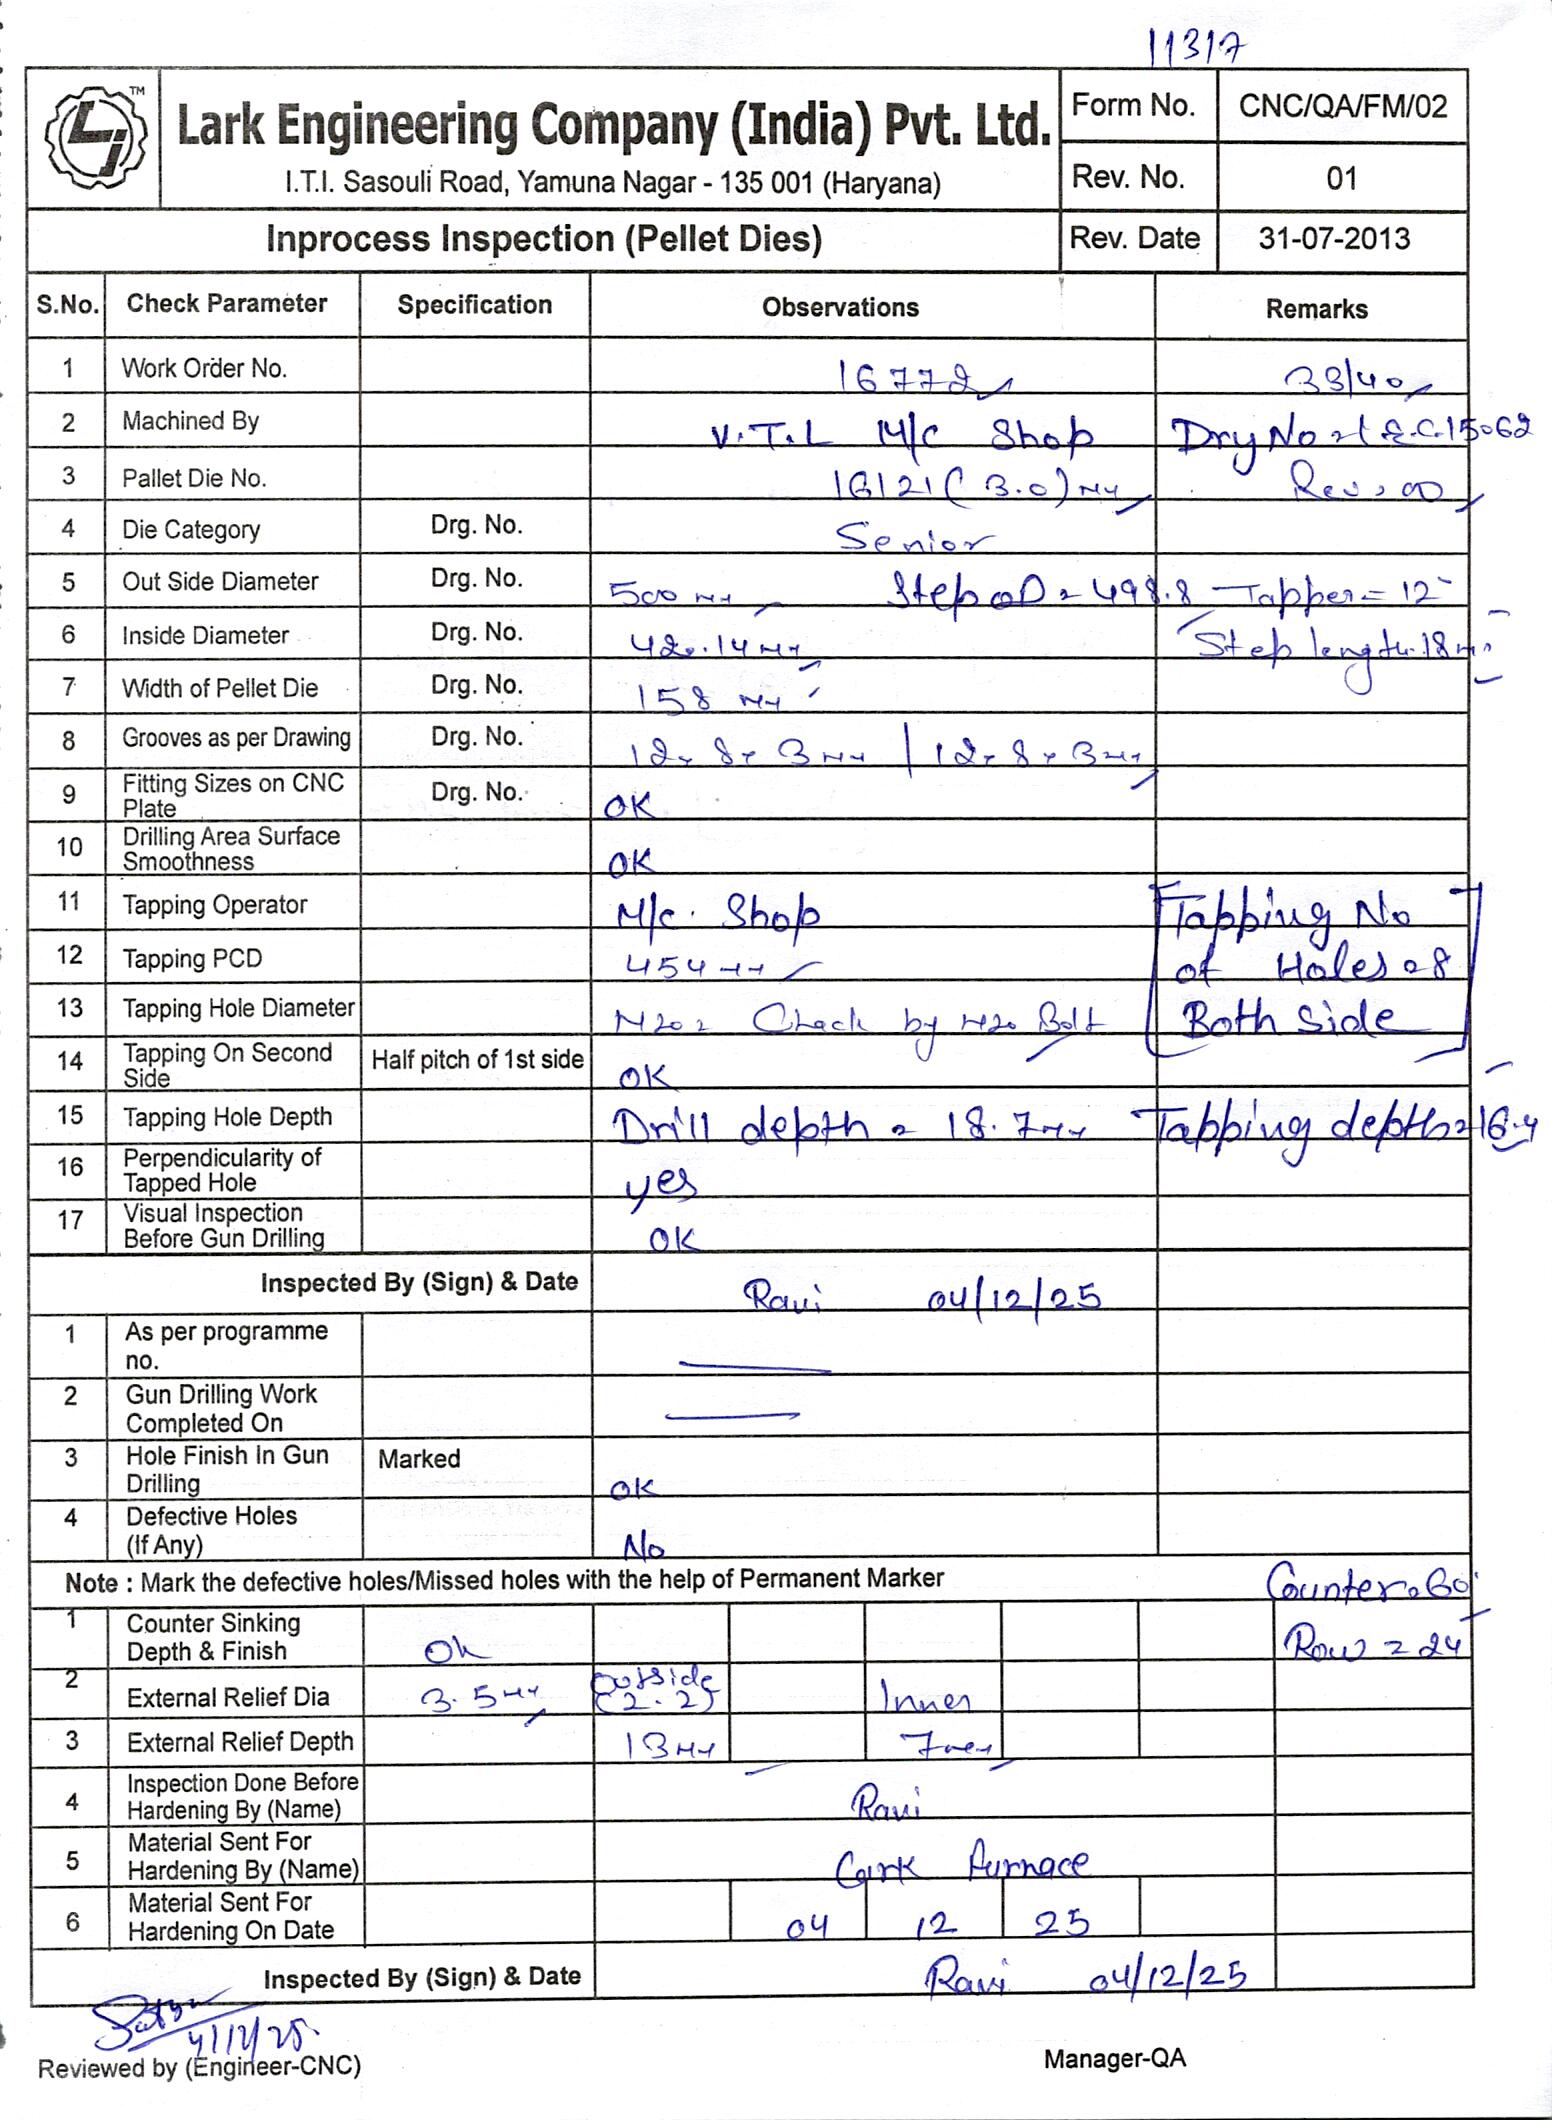 11317
TM
Lark Engineering Company (India) Pvt. Ltd.
I.T.I. Sasouli Road, Yamuna Nagar - 135 001 (Haryana)
Form No. CNC/QA/FM/02
Rev. No. 01
Inprocess Inspection (Pellet Dies)
Rev. Date 31-07-2013
S.No. Check Parameter Specification Observations Remarks
1 Work Order No. 16772 33/40
2 Machined By V.T.L M/c Shop
3 Pallet Die No. 16121 (3.0) mm Rev. 00
4 Die Category Drg. No. Senior
5 Out Side Diameter Drg. No. 500 mm Step OD = 498.8 Tapper = 12
6 Inside Diameter Drg. No. 420.14 mm Step length = 18 mm
7 Width of Pellet Die Drg. No. 158 mm
8 Grooves as per Drawing Drg. No. 12 x 8 x 3 mm | 12 x 8 x 3 mm
9 Fitting Sizes on CNC Plate Drg. No. OK
10 Drilling Area Surface Smoothness OK
11 Tapping Operator M/c. Shop Tapping No
12 Tapping PCD 454 mm of Holes = 8
13 Tapping Hole Diameter M20 = Check by M20 Bolt Both Side
14 Tapping On Second Side Half pitch of 1st side OK
15 Tapping Hole Depth Drill depth = 18.7 mm Tapping depth = 16.4
16 Perpendicularity of Tapped Hole yes
17 Visual Inspection Before Gun Drilling OK
Inspected By (Sign) & Date Ravi 04/12/25
1 As per programme no.
2 Gun Drilling Work Completed On
3 Hole Finish In Gun Drilling Marked OK
4 Defective Holes (If Any) No
Note : Mark the defective holes/Missed holes with the help of Permanent Marker Counter = 60
1 Counter Sinking Depth & Finish Ok Row = 24
2 External Relief Dia 3.5 mm outside (2.2) Inner
3 External Relief Depth 13 mm 7 mm
4 Inspection Done Before Hardening By (Name) Ravi
5 Material Sent For Hardening By (Name) furnace
6 Material Sent For Hardening On Date 04 12 25
Inspected By (Sign) & Date Ravi 04/12/25
4/12/25.
Reviewed by (Engineer-CNC) Manager-QA